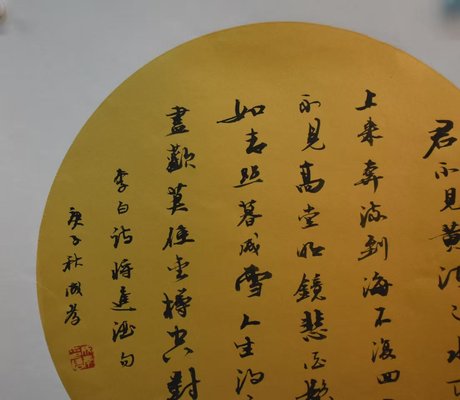 君不見黃河之水
上來奔流到海不復回
不見高堂明鏡悲白髮
如青丝暮成雪人生得
盡歡莫使金樽空對
李白詩將進酒句
庚子秋